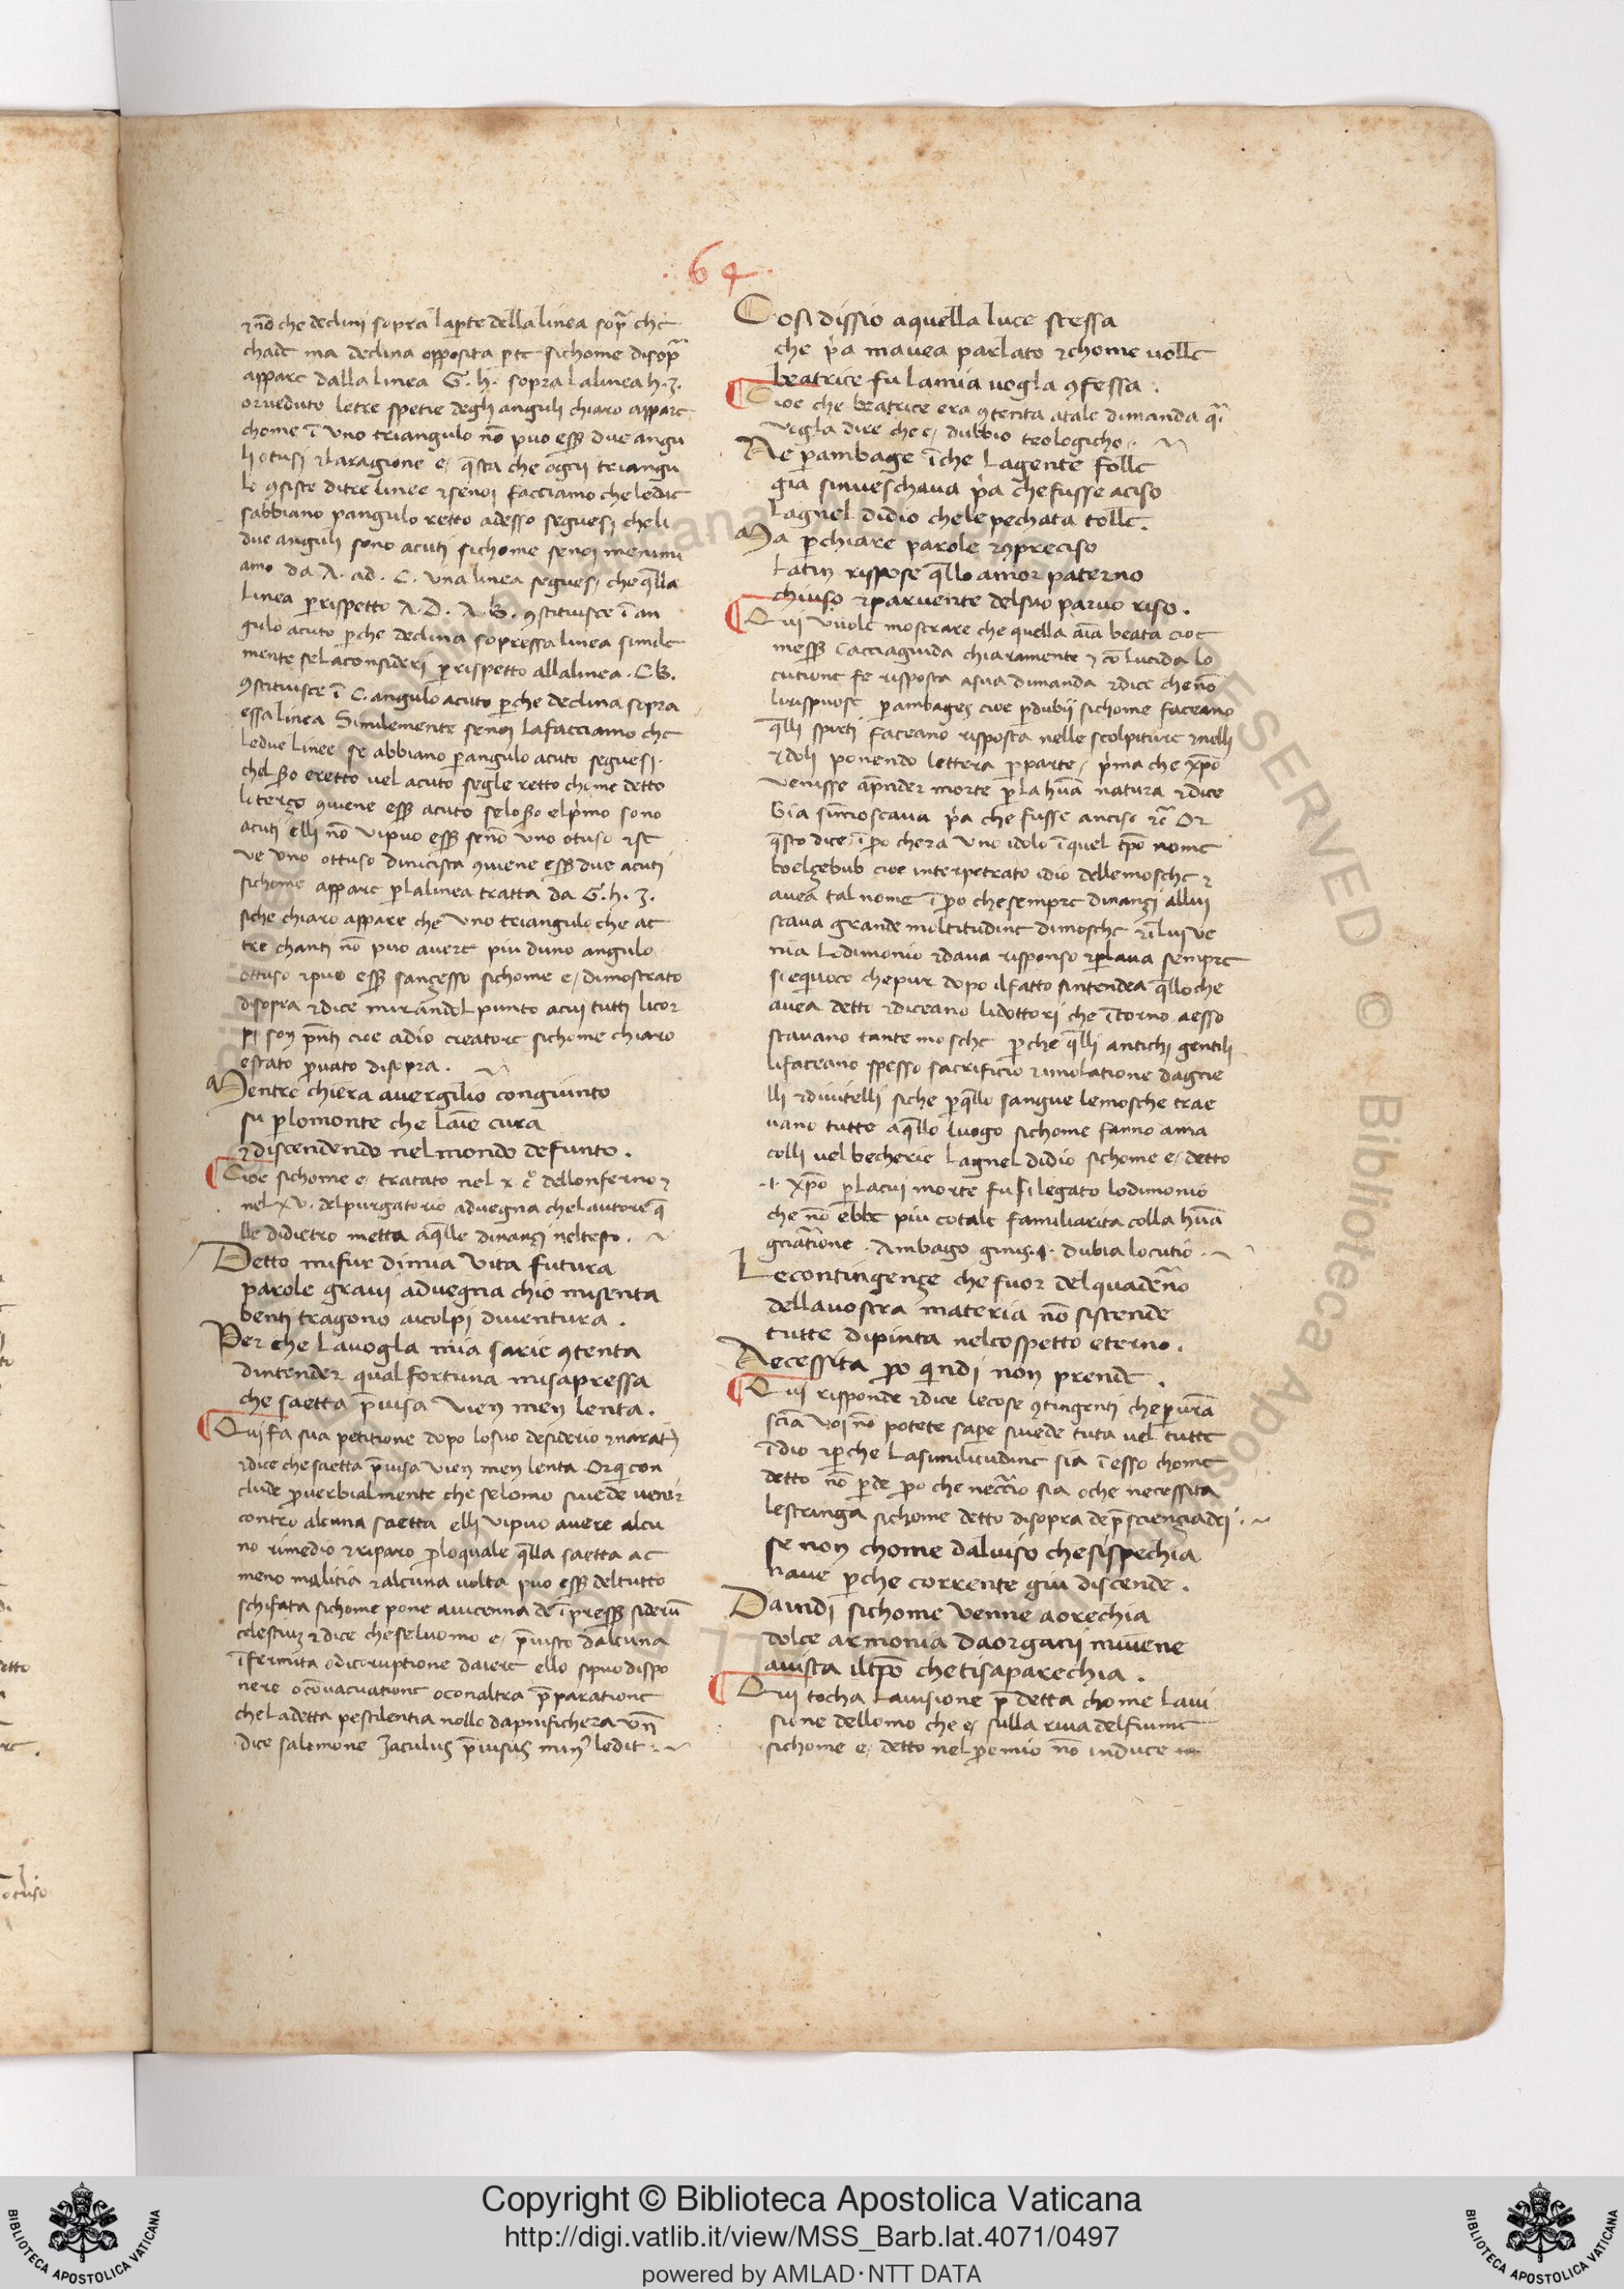 64
⁊ nō che declini sopra laparte della linea sopͣ che
chade ma declina opposita parte sichome disopͣ
appare dalla linea G. h. sopra lalinea h. ʒ.
or veduto le tre spetie degli anguli chiaro appare
chome ī uno triangulo nō puo esser due angu
li otusi ⁊ laragione e, q̄sta che ogni triangu
lo ꝯsiste di tre linee ⁊ se noi facciamo che le due
sabbiano p angulo retto adesso seguesi che li
due anguli sono acuti sichome se noi menini
amo da A. ad. C. una linea seguesi che q̄lla
linea p rispetto A. D. A. B. ꝯstituisce ī an
gulo acuto p che declina sopressa linea simile
mente se la consideri p rispetto alla linea. C B.
ꝯstituisce ī C. angulo acuto p che declina sopra
essa linea Similemente se noi la facciamo che
le due linee se abbiano p angulo acuto seguesi.
retto vel acuto segle retto chome detto
li terço ꝯviene esser acuto elpͥmo sono
acuti elli nō vi puo esser se nō uno otuso ⁊ se
ve uno ottuso dinicista ꝯviene esser due acuti
sichome appare p la linea tratta da G. h. ʒ.
siche chiaro appare che uno triangulo che ae
tre chanti nō puo avere piu duno angulo
ottuso ⁊ puo esser sancesso sichome e, dimostrato
disopra ⁊ dice mirandol punto a cui tutti li cor
pi son p̄nti cioe adio creatore sichome chiaro
e stato pvato disopra.
Mentre chiera avergilio congiunto
su p lo monte che lanīe cura
⁊ discendendo nel mondo defunto.
Cioe sichome e, tratato nel x. cͦ dellonferno ⁊
nel xv. del purgatorio advegna chel autore q̄
lle didietro metta a q̄lle dinançi nel testo.
Detto mi fur di mia vita futura
parole gravi advegna chio mi senta
ben ti tragono ai colpi di ventura.
Per che la vogla mia sarie ꝯtenta
dintender qual fortuna mi sapressa
che saetta p̄visa vien men lenta.
Qui fa sua petitione dopo lo suo desiderio ⁊ narat
⁊ dice che saetta p̄visa vien men lenta Or q con
clude pverbialmente che selomo si vede venir
contro alcuna saetta elli vi puo avere alcu
no rimedio ⁊ riparo p lo quale q̄lla saetta ae
meno malitia ⁊ alcuna volta puo esser deltutto
schifata sichome pone avicenna de īpresser siderū
celestium ⁊ dice che seluomo e, p̄visto dalcuna
īfermita o di coruptione daiere ello si puo dispo
nere o cō vacuatione o con altra p̄paratione
che la detta pestilentia nollo dapnifichera vñ
dice salomone Jaculus p̄visus minꝰ ledit.
Cosi dissio a quella luce stessa
che pͥa mavea parlato ⁊ chome volle
beatrice fu la mia vogla ꝯfessa.
Cioe che beatrice era ꝯtenta a tale dimanda qͣi
vogla dire che e, dubbio teologicho.
Ne p ambage ī che la gente folle
gia sinveschava pͥa che fusse aciso
lagnel didio che le pechata tolle.
Ma p chiare parole ⁊ ꝯ preciso
latin rispose q̄llo amor paterno
chiuso ⁊ parvente del suo parvo riso.
Qui vuole mostrare che quella aīa beata cioe
messer Cacciaguida chiaramente ⁊ cō lucida lo
cutione fe risposta a sua dimanda ⁊ dice che nō
lui rispuose p ambages cioe p dubii sichome faceano
q̄lli spirti faceano risposta nelle scolpiture ⁊ nelli
ydoli ponendo lettera p parte, pͥma che xp̄o
venisse a p̄nder morte p la hūa natura ⁊ dice
Gia sinvoscava pͥa che fusse anciso ⁊c̄ Or
q̄sto dice ī po chera uno idolo ī quel tp̄o nome
boelçebub cioe interpetrato idio delle mosche ⁊
avea tal nome ī po che sempre dinançi allui
stava grande moltitudine di mosche ⁊ ī lui ve
nia lo dimonio ⁊ dava risponso ⁊ plava sempre
si equivoco che pur dopo il fatto sintendea q̄llo che
avea detto ⁊ diceano li dottori che ītorno a esso
stavano tante mosche p che q̄lli antichi gentili
li faceano spesso sacrificio ⁊ imolatione dagne
lli ⁊ di vitelli siche p q̄llo sangue le mosche trae
vano tutte a q̄llo luogo sichome fanno a ma
celli vel becherie lagnel didio sichome e, detto
.i. xp̄o p la cui morte fu si legato lo dimonio
che nō ebbe piu cotale familiarita colla hūa
gn̄atione. Ambago ginis .i. dubia locutio.
Le contingençe che fuor del quaderno
della vostra materia nō si stende
tutte dipinta nel cospetto eterno.
Necessita po quindi non prende.
Qui risponde ⁊ dice le cose ꝯtingenti che p vr̄a
scīa voi nō potete sape si vede tuta vel tutte
ī dio ⁊ p che la similitudine sia ī esso chome
detto nō pde po che neccͣio sia o che necessita
le stringa sichome detto disopra de p̄sciençia dei.
se non chome dal viso che si spechia
nave p che corrente giu discende.
Da indi sichome venne a orechia
dolce armonia da organi mi vene
a vista il tp̄o che ti saparechia.
Qui tocha la visione p̄detta chome la vi
sione dellomo che e, sulla riva del fiume
sichome e, detto nel pemio nō induce
Copyright © Biblioteca Apostolica Vaticana
http://digi.vatlib.it/view/MSS_Barb.lat.4071/0497
powered by AMLAD·NTT DATA
BIBLIOTECA APOSTOLICA VATICANA
BIBLIOTECA APOSTOLICA VATICANA